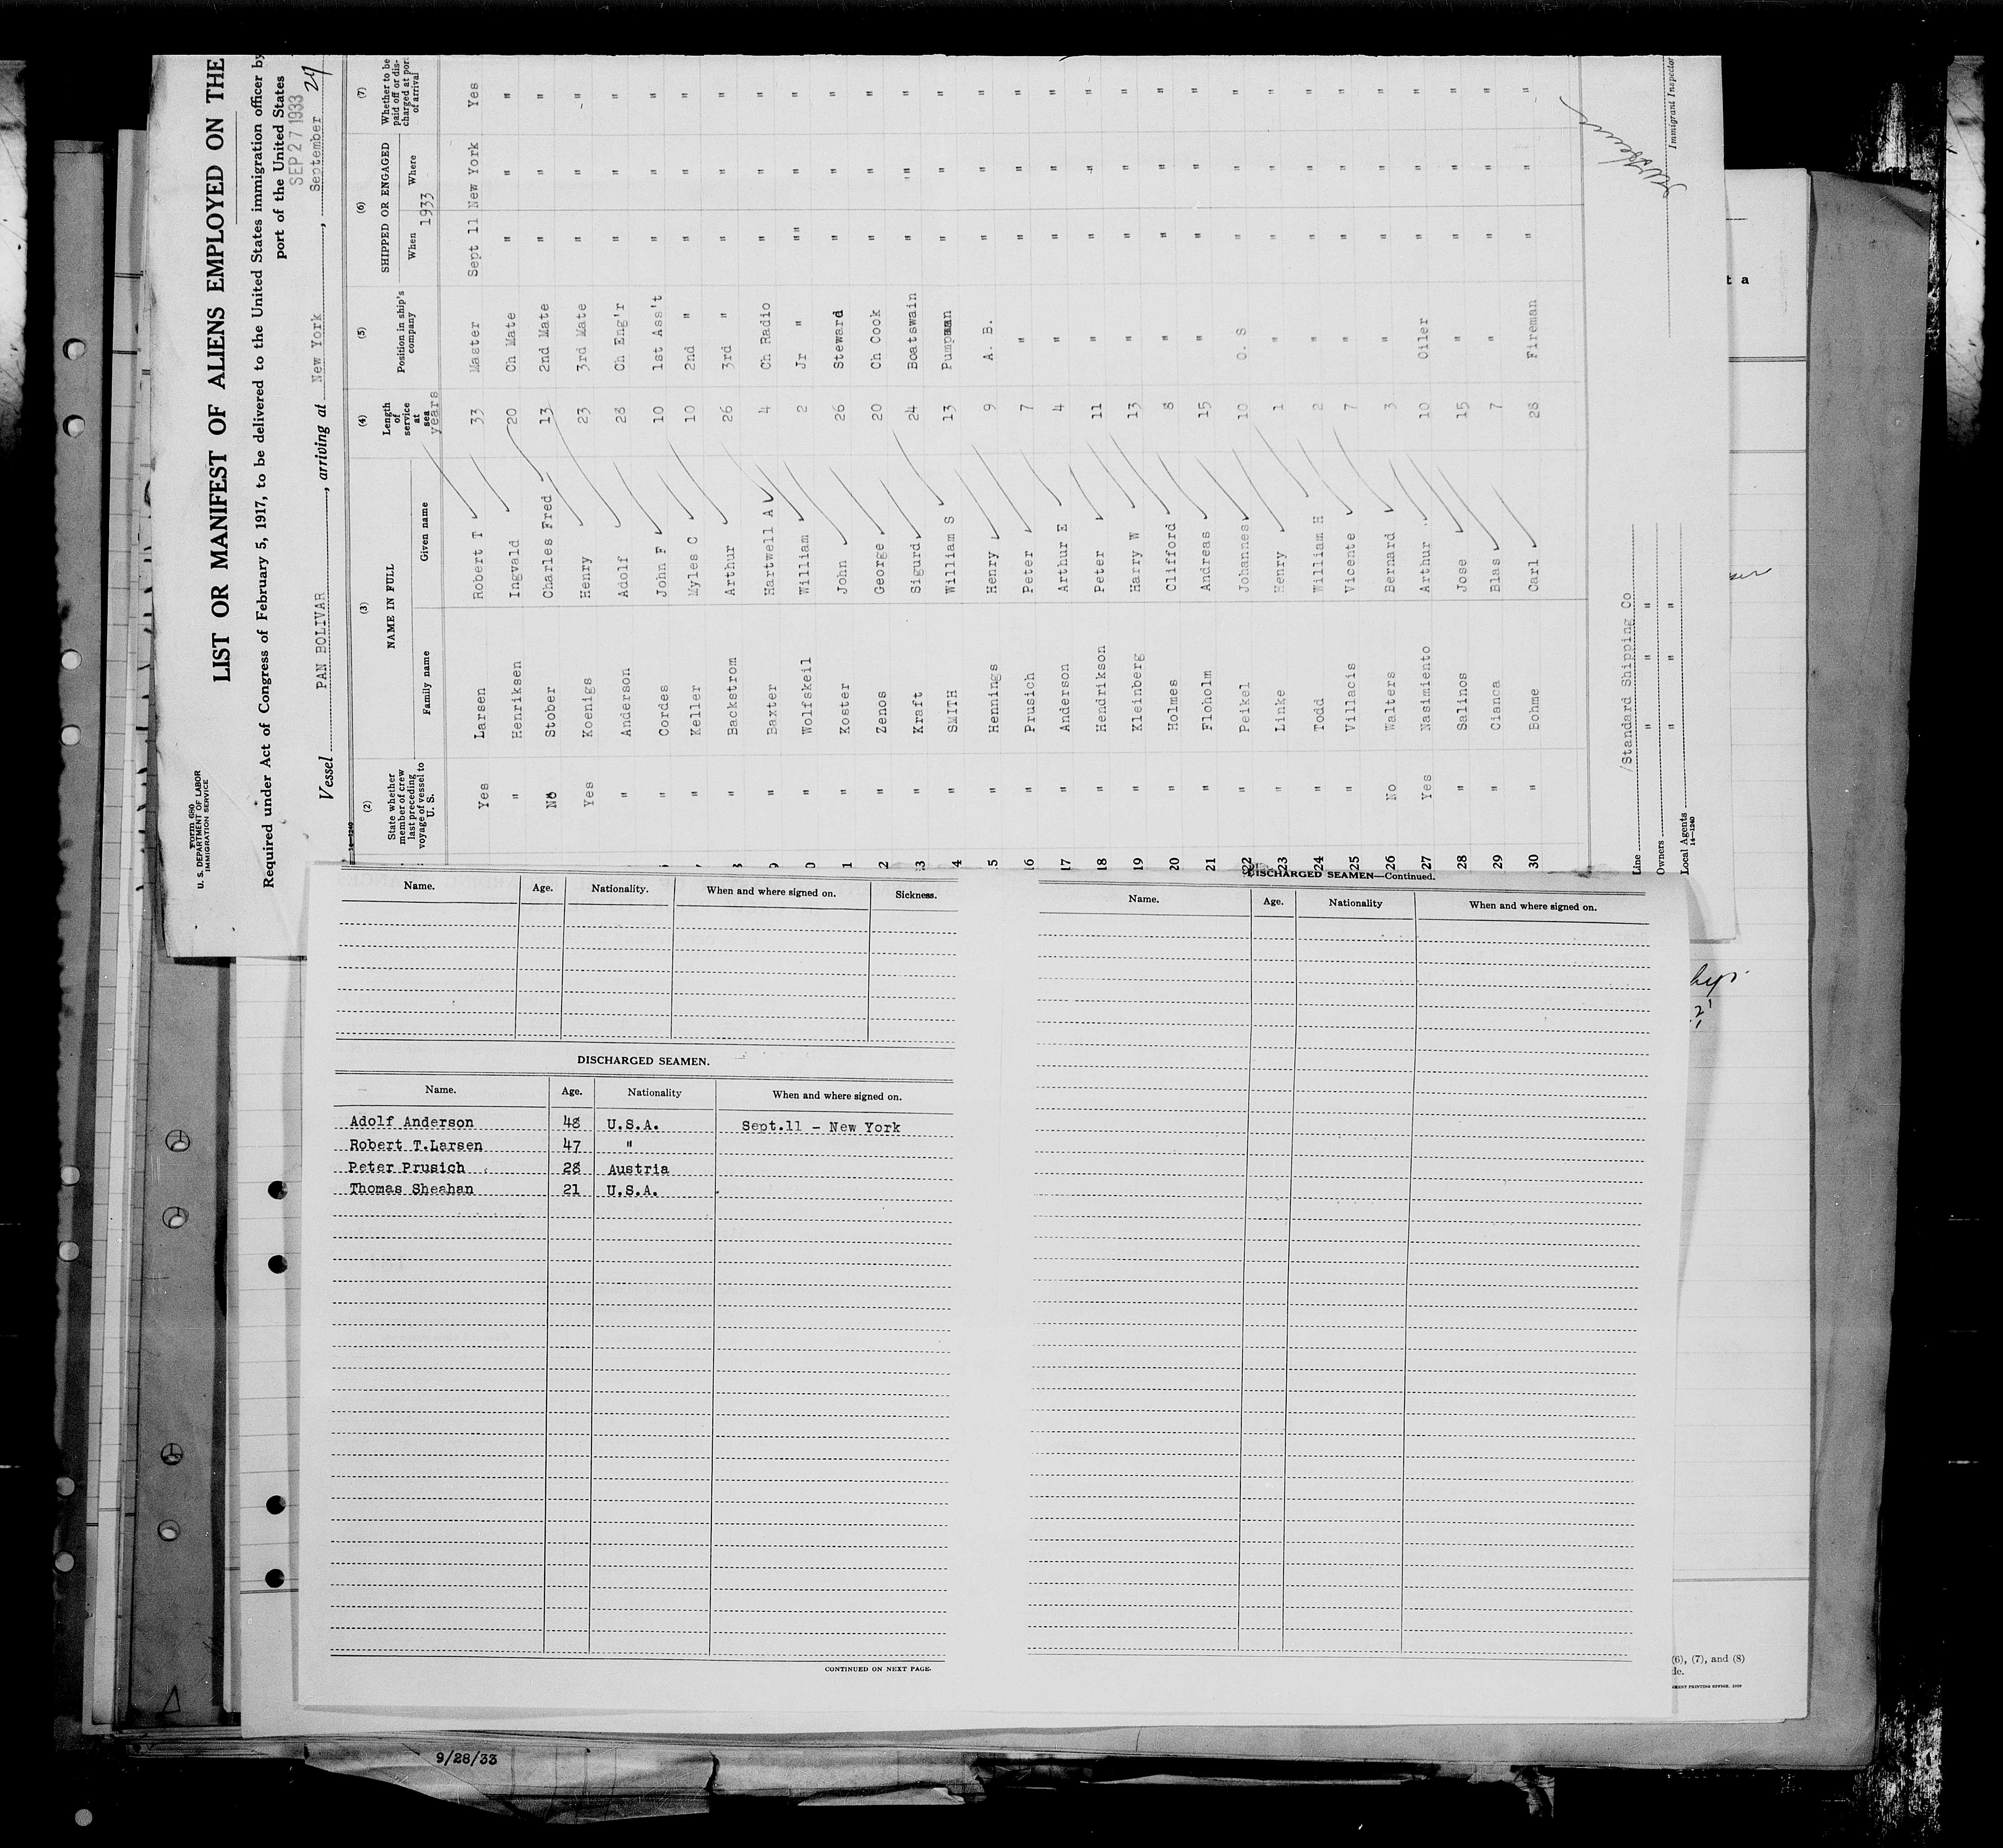 Form 680
U. S. DEPARTMENT OF LABOR
IMMIGRATION SERVICE
LIST OR MANIFEST OF ALIENS EMPLOYED ON THE
Required under Act of Congress of February 5, 1917, to be delivered to the United States immigration officer by
port of the United States
SEP 27 1933
Vessel PAN BOLIVAR, arriving at New York, September 27
14—1240
(2) (3) (4) (5) (6) (7)
State whether member of crew last preceding voyage of vessel to U. S.
NAME IN FULL
Family name Given name
Length of service at sea years
Position in ship's company
SHIPPED OR ENGAGED
When Where
1933
Whether to be paid off or discharged at port of arrival
Yes Larsen Robert T 33 Master Sept 11 New York Yes
" Henriksen Ingvald 20 Ch Mate " " "
No Stober Charles Fred 13 2nd Mate " " "
Yes Koenigs Henry 23 3rd Mate " " "
" Anderson Adolf 28 Ch Eng'r " " "
" Cordes John F 10 1st Ass't " " "
" Keller Myles C 10 2nd " " " "
" Backstrom Arthur 26 3rd " " " "
9 " Baxter Hartwell A 4 Ch Radio " " "
0 " Wolfskeil William 2 Jr " "" " "
1 " Koster John 26 Steward " " "
2 " Zenos George 20 Ch Cook " " "
13 " Kraft Sigurd 24 Boatswain " " "
4 " SMITH William S 13 Pumpman " " "
15 " Hennings Henry 9 A. B. " " "
16 " Prusich Peter 7 " " " "
17 " Anderson Arthur E 4 " " " "
18 " Hendrikson Peter 11 " " " "
19 " Kleinberg Harry W 13 " " " "
20 " Holmes Clifford 8 " " " "
21 " Floholm Andreas 15 " " " "
22 " Peikel Johannes 10 O. S " " "
23 " Linke Henry 1 " " " "
24 " Todd William H 2 " " " "
25 " Villacis Vicente 7 " " " "
26 No Walters Bernard 3 " " " "
27 Yes Nasimiento Arthur 10 Oiler " " "
28 " Salinos Jose 15 " " " "
29 " Cianca Blas 7 " " " "
30 " Bohme Carl 28 Fireman " " "
Line /Standard Shipping Co
Owners " " "
Local Agents " " "
14—1240
Immigrant Inspector
Name. Age. Nationality. When and where signed on. Sickness.
DISCHARGED SEAMEN.
Name. Age. Nationality When and where signed on.
Adolf Anderson 48 U.S.A. Sept.11 - New York
Robert T.Larsen 47 "
Peter Prusich 28 Austria
Thomas Sheahan 21 U.S.A.
CONTINUED ON NEXT PAGE.
DISCHARGED SEAMEN—Continued.
Name. Age. Nationality When and where signed on.
t a
(6), (7), and (8)
de.
MENT PRINTING OFFICE.
9/28/33